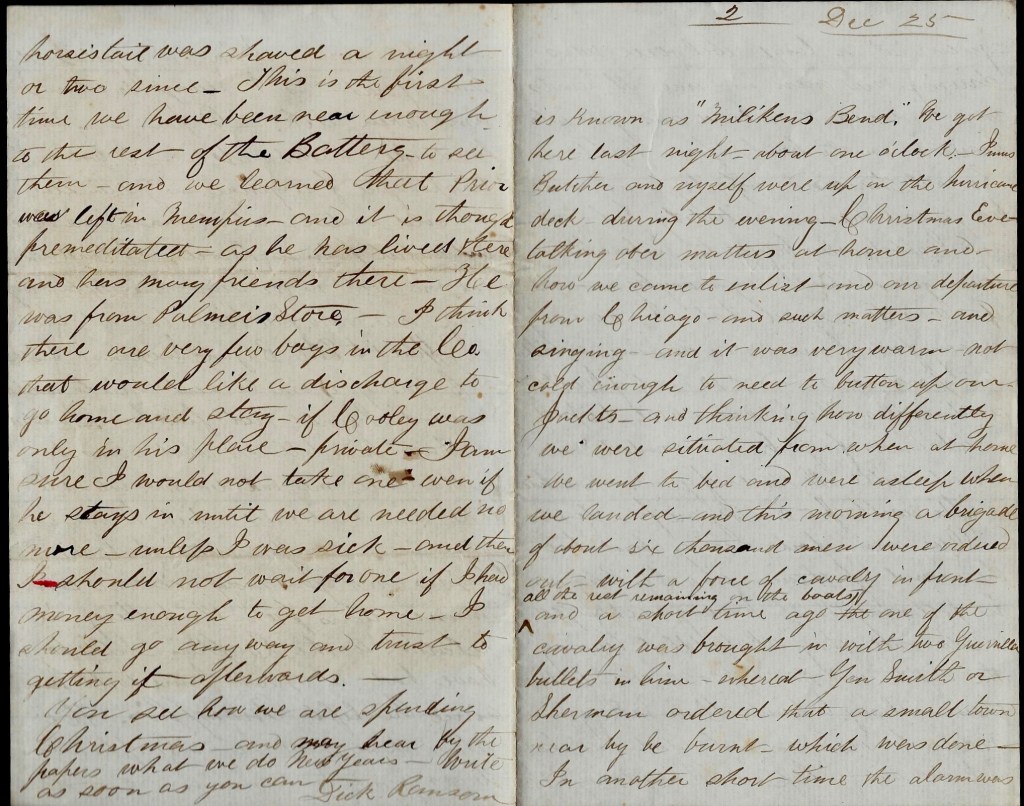 horsestail was shaved a night
or two since – This is the first
time we have been near enough
to the rest of the Battery – to see
them – and we learned that Prior
was left in Memphis – and it is thought
premeditated – as he has lived there
and has many friends there – He
was from Palmers Store. – I think
there are very few boys in the Co.
that would like a discharge to
go home and stay – if Cooley was
only in his place – private – I am
sure I would not take one even if
he stays in until we are needed no
more – unless I was sick – and then
I should not wait for one if I had
money enough to get home – I
should go any way and trust to
getting it afterwards. –
You see how we are spending
Christmas – and may hear by the
papers what we do New Years – Write
as soon as you can Dick Ransom
2 Dec 25
is known as "Milikens Bend". We got
here last night – about one o'clock –
Butcher and myself were up on the hurricane
deck durring the evening – Christmas Eve –
talking over matters at home and –
how we came to enlist – and our departure
from Chicago – and such matters – and
singing – and it was very warm – not
cold enough to need to button up our
Jackets – and thinking how differently
we were situated from when at home
We went to bed and were asleep when
we landed – and this morning a brigade
of about six thousand men were ordered
out – with a force of cavalry in front –
all the rest remaining on the boats,
and a short time ago the one of the
cavalry was brought in with two Guerrilla
bullets in him – whereat Gen Smith or
Sherman ordered that a small town
near by be burnt – which was done –
In another short time the alarm was